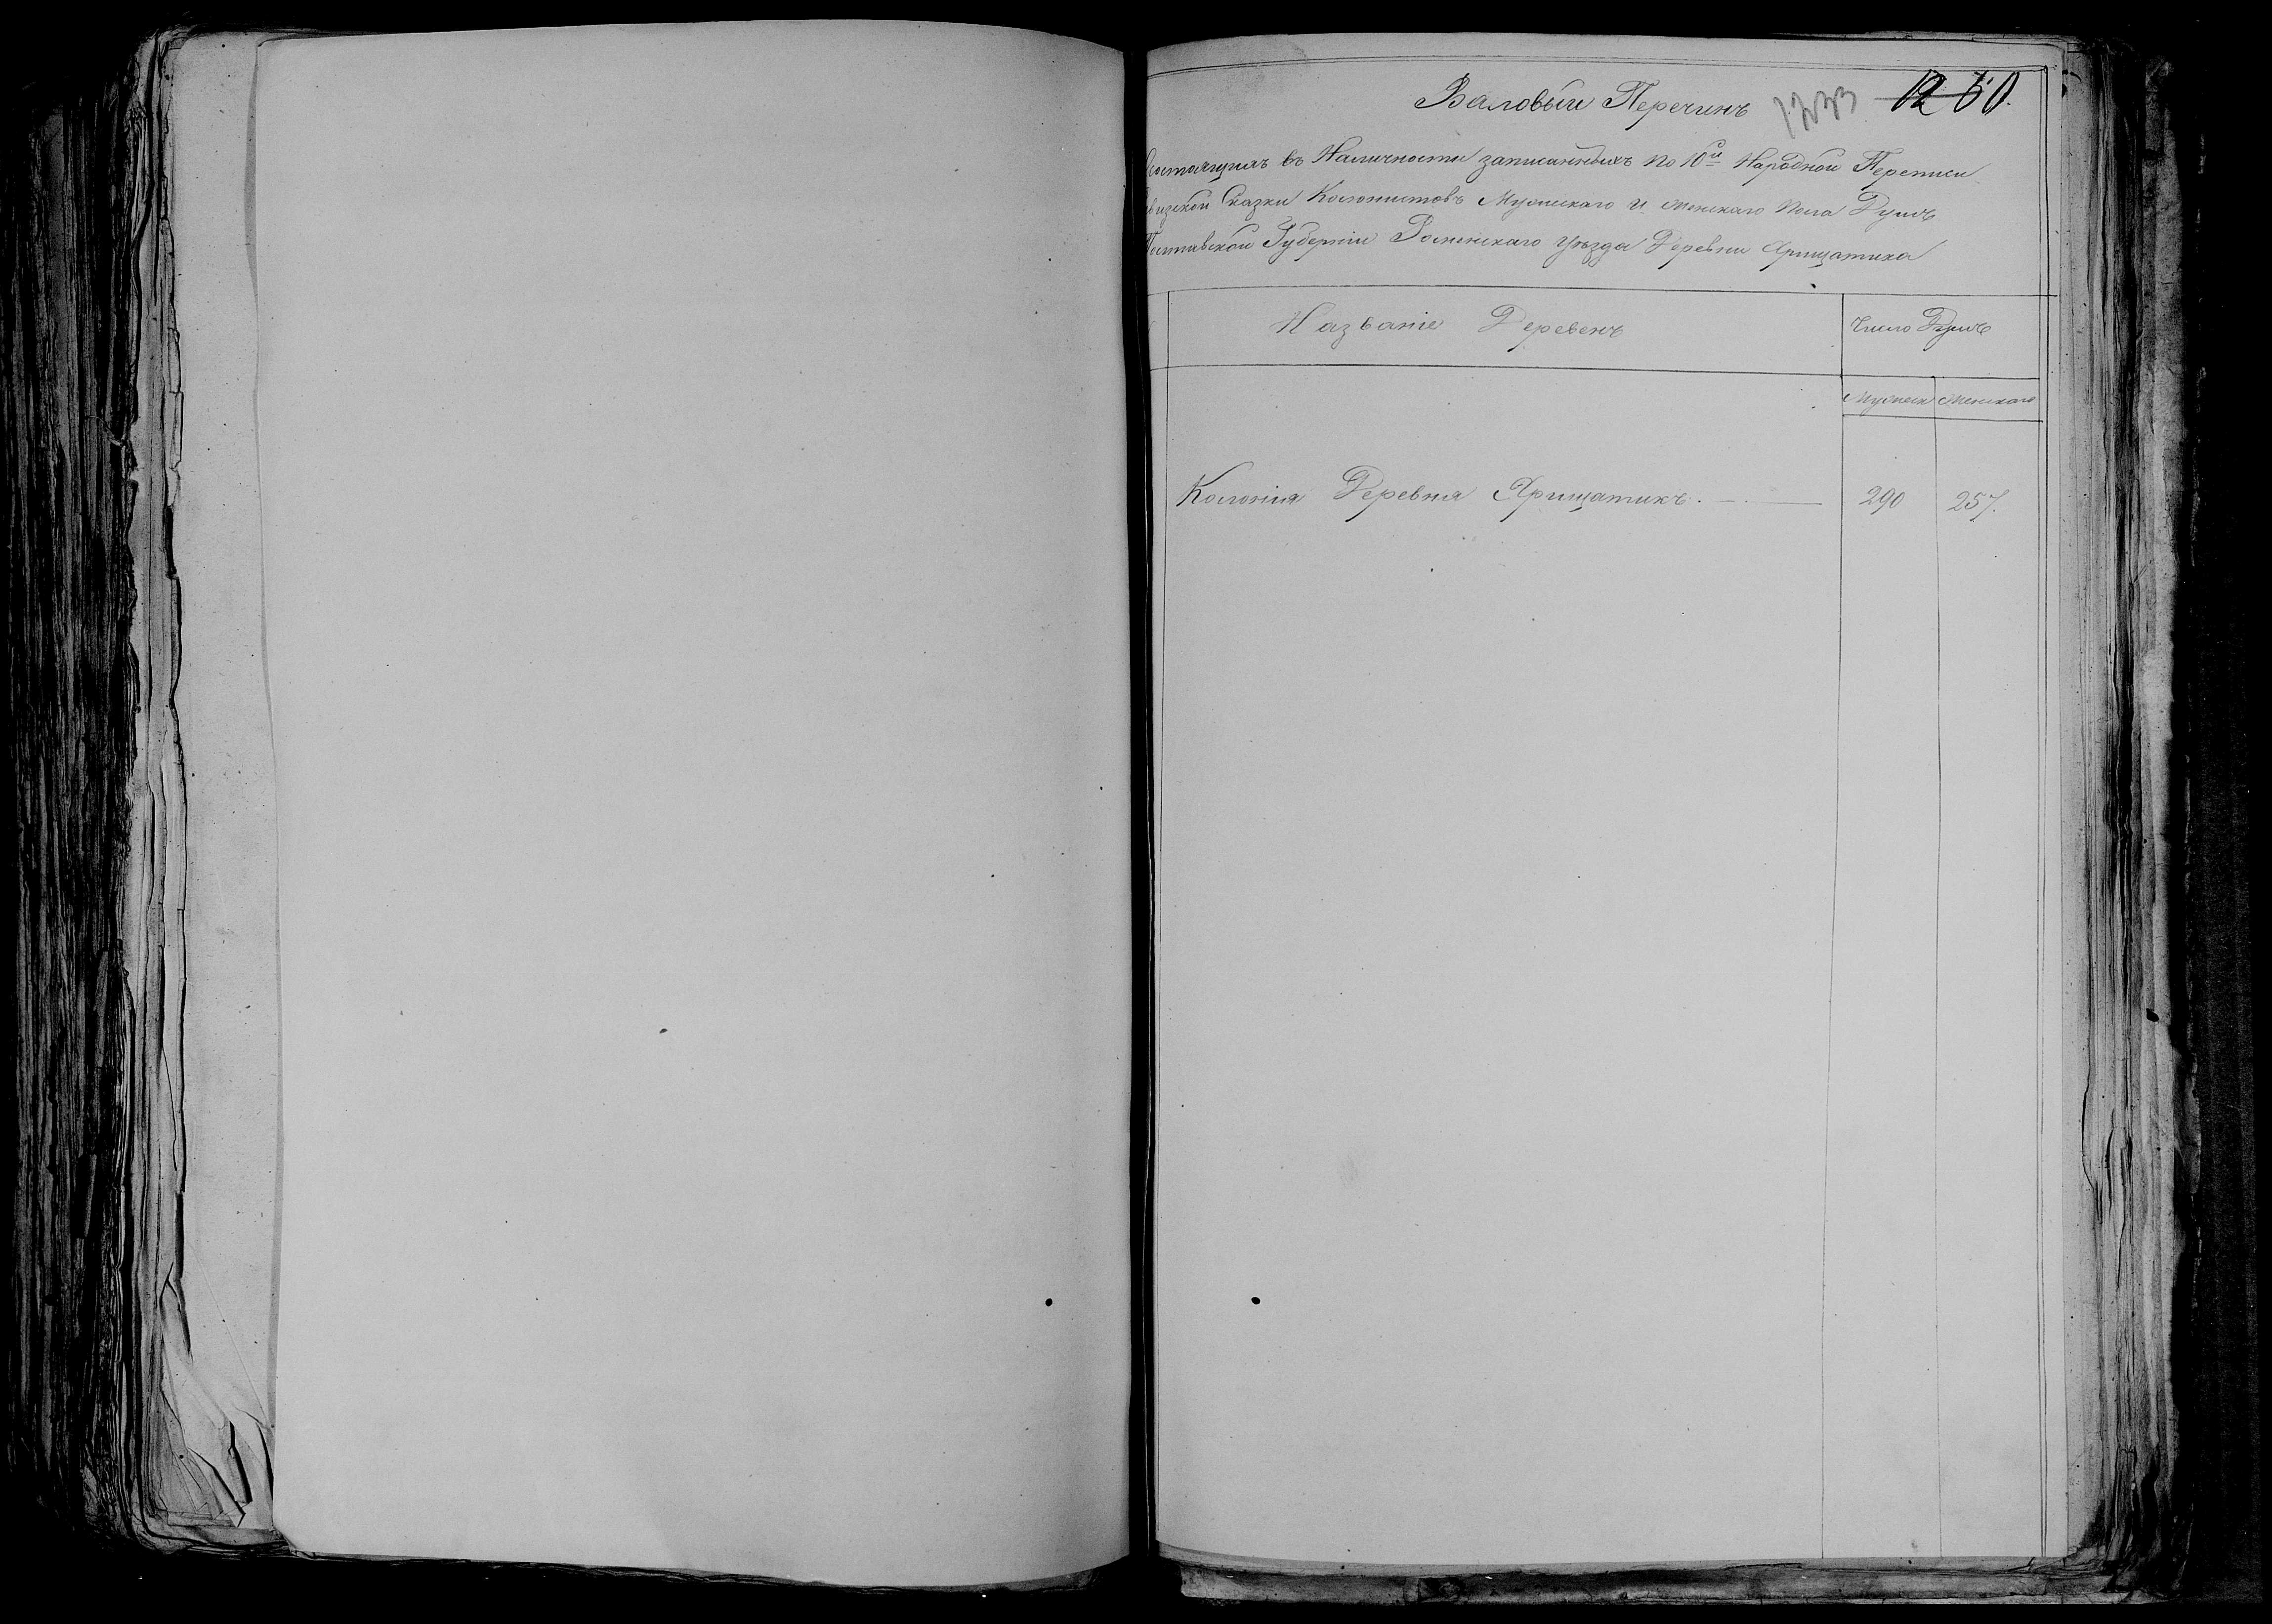 Валовый Перечинъ 1233 1260.
состоящихъ въ Наличности записанныхъ по 10й Народной Переписи
Сказки Колонистовъ Мужескаго и женскаго пола Душъ
Полтавской Губерніи Роменскаго Уѣзда Деревни
Названіе Деревенъ
Число Душъ
Мужеск женскаго
Колонія Деревня 290 257.